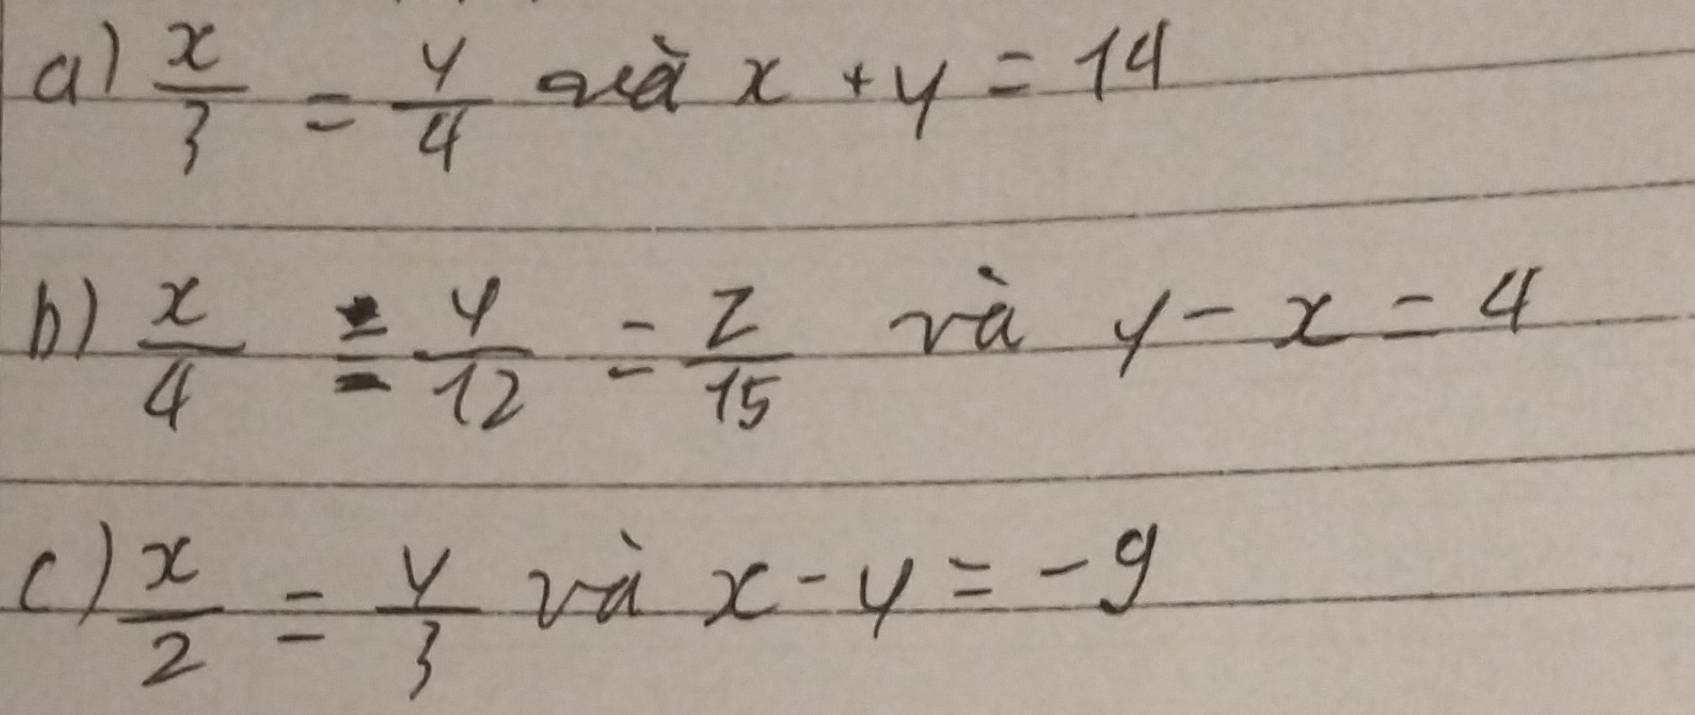 a) x/3 = y/4 và x + y = 14
b) x/4 = y/12 = z/15 và y - x = 4
c) x/2 = y/3 và x - y = -9